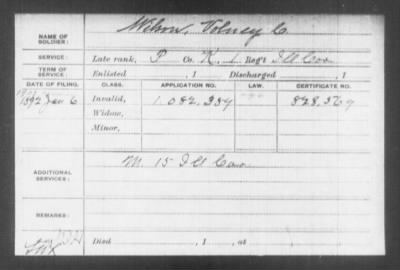 NAME OF SOLDIER: Wilson, Volney C.
SERVICE: Late rank, P Co. K, 1 Reg't Ill Cav
TERM OF SERVICE: Enlisted , 1 Discharged , 1
DATE OF FILING. CLASS. APPLICATION NO. LAW. CERTIFICATE NO.
1892 Jan 6 Invalid, 1.082.339 828.369
Widow,
Minor,
ADDITIONAL SERVICES: M. 15 Ill Cav
REMARKS:
Died , 1 , at